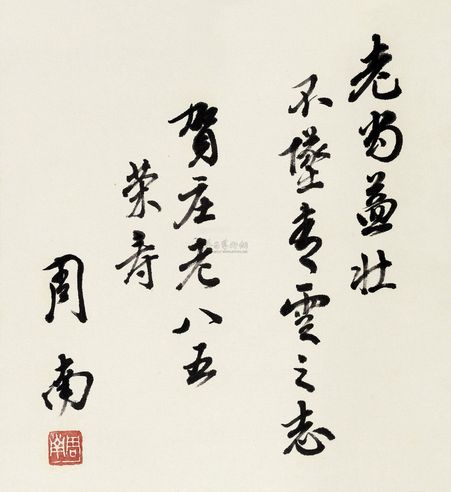 老当益壮
不坠青云之志
贺庄老八五
荣寿
周南
周南